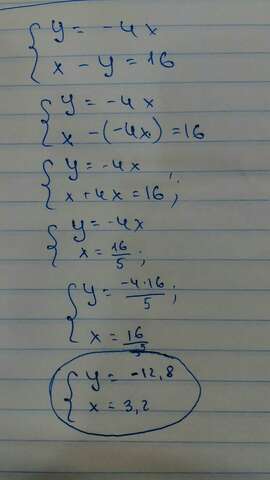 { y = -4x
x - y = 16
{ y = -4x
x - (-4x) = 16
{ y = -4x ;
x + 4x = 16 ;
{ y = -4x
x = 16/5 ;
{ y = -4·16/5 ;
x = 16/5
{ y = -12,8
x = 3,2